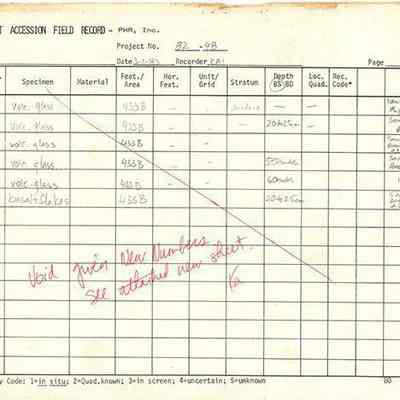 T ACCESSION FIELD RECORD - PHR, Inc.
Project No. 82 - 48
Date Recorder KAI Page
Specimen Material Feat./Area Hor. Feat. Unit/Grid Stratum Depth BS/BD Loc. Quad. Rec. Code*
Volc. glass 433B - - Surface - -
Volc. glass 433B - - - 20to25cm -
volc. glass 433B - -
volc. glass 433B - -
volc. glass 433B - 60
basalt flakes 433B 20to25cm
Void given New Numbers
See attached new sheet.
y Code: 1=in situ; 2=Quad.known; 3=in screen; 4=uncertain; 5=unknown 80